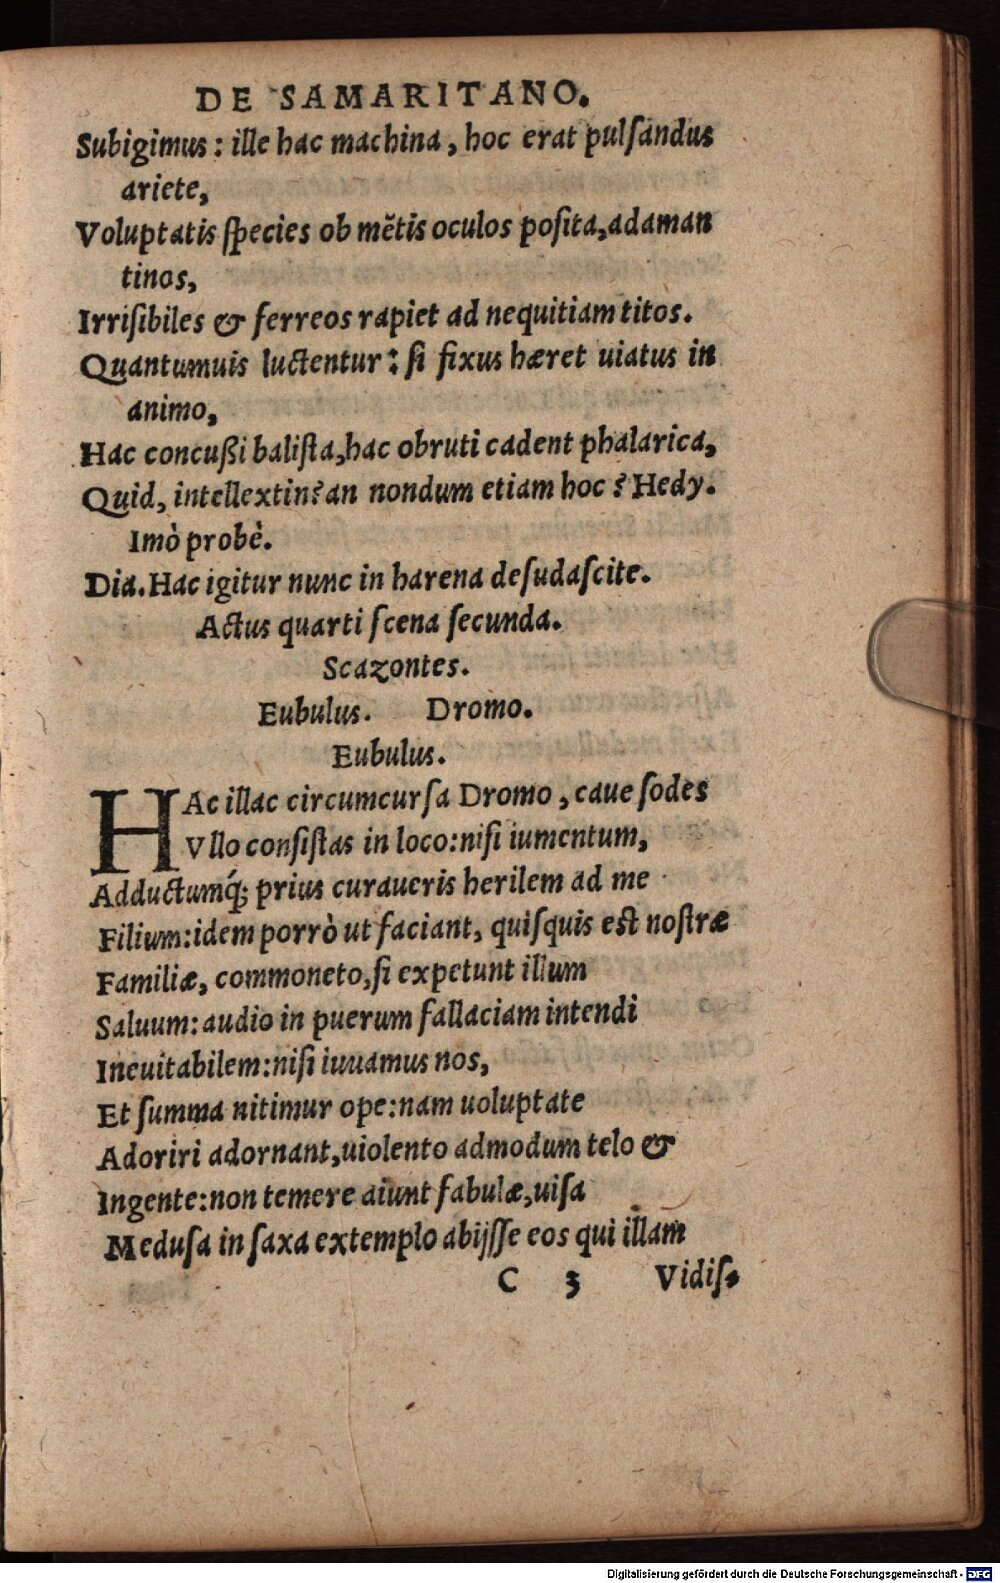 DE SAMARITANO.
Subigimus: ille hac machina, hoc erat pulſandus
ariete,
Voluptatis ſpecies ob mẽtis oculos poſita, adaman
tinos,
Irriſibiles & ferreos rapiet ad nequitiam titos.
Quantumuis luctentur: ſi fixus hæret uiatus in
animo,
Hac concußi baliſta, hac obruti cadent phalarica,
Quid, intellextin? an nondum etiam hoc? Hedy.
Imò probè.
Dia. Hac igitur nunc in harena deſudaſcite.
Actus quarti ſcena ſecunda.
Scazontes.
Eubulus. Dromo.
Eubulus.
HAc illac circumcurſa Dromo, caue ſodes
Vllo conſiſtas in loco: niſi iumentum,
Adductumq́; prius curaueris herilem ad me
Filium: idem porrò ut faciant, quiſquis eſt noſtræ
Familiæ, commoneto, ſi expetunt illum
Saluum: audio in puerum fallaciam intendi
Ineuitabilem: niſi iuuamus nos,
Et ſumma nitimur ope: nam uoluptate
Adoriri adornant, uiolento admodum telo &
Ingente: non temere aiunt fabulæ, uiſa
Meduſa in ſaxa extemplo abijſſe eos qui illam
C 3 Vidiſ-
Digitalisierung gefördert durch die Deutsche Forschungsgemeinschaft - DFG